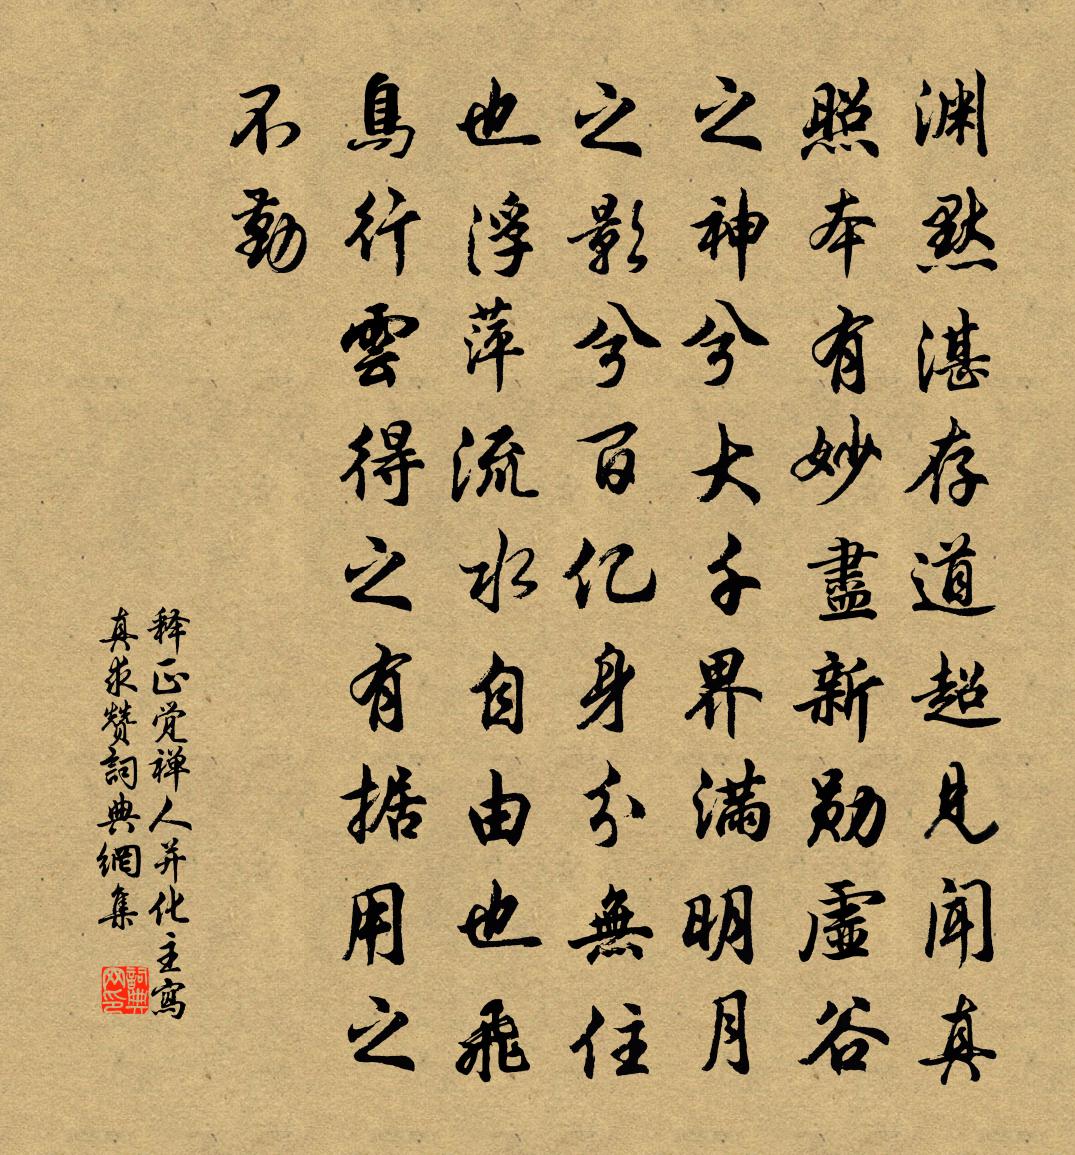 渊默湛存道超见闻真
照本有妙盡新勋虛谷
之神兮大千界满明月
之影兮百亿身分無住
也浮萍流水自由也飛
鳥行雲得之有据用之
不勤
释正觉禅人并化主寫
真求赞詞典網集
詞典网印